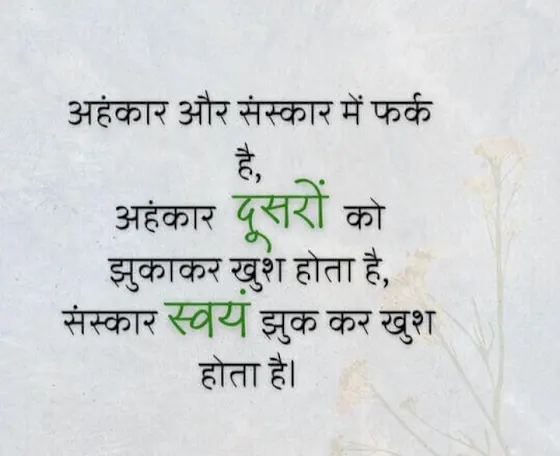 अहंकार और संस्कार में फर्क
है,
अहंकार दूसरों को
झुकाकर खुश होता है,
संस्कार स्वयं झुक कर खुश
होता है।